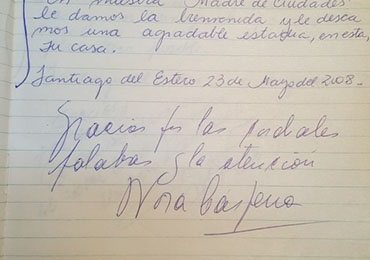 En nuestra "Madre de Ciudades"
le damos la bienvenida y le desea
mos una agradable estadía, en esta,
su casa.
Santiago del Estero 23 de Mayo del 2008.-
Gracias por las cordiales
palabras y la atención
Nora